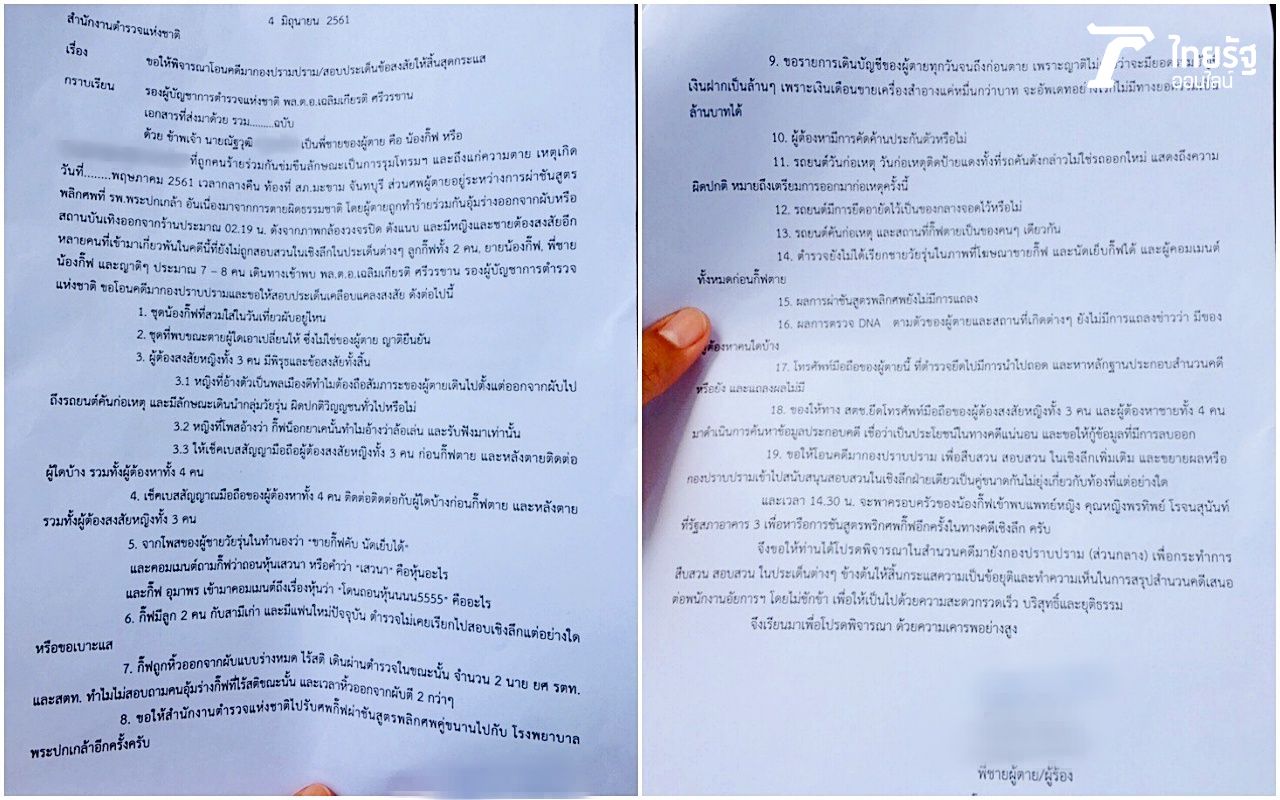 4 มิถุนายน 2561
สำนักงานตำรวจแห่งชาติ
เรื่อง ขอให้พิจารณาโอนคดีมากองปรามปราม/สอบประเด็นข้อสงสัยให้สิ้นสุดกระแส
กราบเรียน รองผู้บัญชาการตำรวจแห่งชาติ พล.ต.อ.เฉลิมเกียรติ ศรีวรขาน
เอกสารที่ส่งมาด้วย รวม.........ฉบับ
ด้วย ข้าพเจ้า นายณัฐวุฒิ เป็นพี่ชายของผู้ตาย คือ น้องกิ๊ฟ หรือ
ที่ถูกคนร้ายร่วมกันข่มขืนลักษณะเป็นการรุมโทรมฯ และถึงแก่ความตาย เหตุเกิด
วันที่........พฤษภาคม 2561 เวลากลางคืน ท้องที่ สภ.มะขาม จันทบุรี ส่วนศพผู้ตายอยู่ระหว่างการผ่าชันสูตร
พลิกศพที่ รพ.พระปกเกล้า อันเนื่องมาจากการตายผิดธรรมชาติ โดยผู้ตายถูกทำร้ายร่วมกันอุ้มร่างออกจากผับหรือ
สถานบันเทิงออกจากร้านประมาณ 02.19 น. ดังจากภาพกล้องวงจรปิด ดังแนบ และมีหญิงและชายต้องสงสัยอีก
หลายคนที่เข้ามาเกี่ยวพันในคดีนี้ที่ยังไม่ถูกสอบสวนในเชิงลึกในประเด็นต่างๆ ลูกกิ๊ฟทั้ง 2 คน, ยายน้องกิ๊ฟ, พี่ชาย
น้องกิ๊ฟ และญาติๆ ประมาณ 7 – 8 คน เดินทางเข้าพบ พล.ต.อ.เฉลิมเกียรติ ศรีวรขาน รองผู้บัญชาการตำรวจ
แห่งชาติ ขอโอนคดีมากองปราบปรามและขอให้สอบประเด็นเคลือบแคลงสงสัย ดังต่อไปนี้
1. ชุดน้องกิ๊ฟที่สวมใส่ในวันเที่ยวผับอยู่ไหน
2. ชุดที่พบขณะตายผู้ใดเอาเปลี่ยนให้ ซึ่งไม่ใช่ของผู้ตาย ญาติยืนยัน
3. ผู้ต้องสงสัยหญิงทั้ง 3 คน มีพิรุธและข้อสงสัยทั้งสิ้น
3.1 หญิงที่อ้างตัวเป็นพลเมืองดีทำไมต้องถือสัมภาระของผู้ตายเดินไปตั้งแต่ออกจากผับไป
ถึงรถยนต์คันก่อเหตุ และมีลักษณะเดินนำกลุ่มวัยรุ่น ผิดปกติวิญญูชนทั่วไปหรือไม่
3.2 หญิงที่โพสอ้างว่า กิ๊ฟน็อกยาเคนั้นทำไมอ้างว่าล้อเล่น และรับฟังมาเท่านั้น
3.3 ให้เช็คเบสสัญญามือถือผู้ต้องสงสัยหญิงทั้ง 3 คน ก่อนกิ๊ฟตาย และหลังตายติดต่อ
ผู้ใดบ้าง รวมทั้งผู้ต้องหาทั้ง 4 คน
4. เช็คเบสสัญญาณมือถือของผู้ต้องหาทั้ง 4 คน ติดต่อติดต่อกับผู้ใดบ้างก่อนกิ๊ฟตาย และหลังตาย
รวมทั้งผู้ต้องสงสัยหญิงทั้ง 3 คน
5. จากโพสของผู้ชายวัยรุ่นในทำนองว่า "ขายกิ๊ฟคับ นัดเย็บได้"
และคอมเมนต์ถามกิ๊ฟว่าถอนหุ้นเสวนา หรือคำว่า "เสวนา" คือหุ้นอะไร
และกิ๊ฟ อุมาพร เข้ามาคอมเมนต์ถึงเรื่องหุ้นว่า "โดนถอนหุ้นนนน5555" คืออะไร
6. กิ๊ฟมีลูก 2 คน กับสามีเก่า และมีแฟนใหม่ปัจจุบัน ตำรวจไม่เคยเรียกไปสอบเชิงลึกแต่อย่างใด
หรือขอเบาะแส
7. กิ๊ฟถูกหิ้วออกจากผับแบบร่างหมด ไร้สติ เดินผ่านตำรวจในขณะนั้น จำนวน 2 นาย ยศ รตท.
และสตท. ทำไมไม่สอบถามคนอุ้มร่างกิ๊ฟที่ไร้สติขณะนั้น และเวลาหิ้วออกจากผับตี 2 กว่าๆ
8. ขอให้สำนักงานตำรวจแห่งชาติไปรับศพกิ๊ฟผ่าชันสูตรพลิกศพคู่ขนานไปกับ โรงพยาบาล
พระปกเกล้าอีกครั้งครับ
ไทยรัฐ
ออนไลน์
9. ขอรายการเดินบัญชีของผู้ตายทุกวันจนถึงก่อนตาย เพราะญาติไม่ ว่าจะมียอด
เงินฝากเป็นล้านๆ เพราะเงินเดือนขายเครื่องสำอางแค่หมื่นกว่าบาท จะอัพเดทอย่าง ไม่มีทางยอด
ล้านบาทได้
10. ผู้ต้องหามีการคัดค้านประกันตัวหรือไม่
11. รถยนต์วันก่อเหตุ วันก่อเหตุติดป้ายแดงทั้งที่รถคันดังกล่าวไม่ใช่รถออกใหม่ แสดงถึงความ
ผิดปกติ หมายถึงเตรียมการออกมาก่อเหตุครั้งนี้
12. รถยนต์มีการยึดอายัดไว้เป็นของกลางจอดไว้หรือไม่
13. รถยนต์คันก่อเหตุ และสถานที่กิ๊ฟตายเป็นของคนๆ เดียวกัน
14. ตำรวจยังไม่ได้เรียกชายวัยรุ่นในภาพที่โฆษณาขายกิ๊ฟ และนัดเย็บกิ๊ฟได้ และผู้คอมเมนต์
ทั้งหมดก่อนกิ๊ฟตาย
15. ผลการผ่าชันสูตรพลิกศพยังไม่มีการแถลง
16. ผลการตรวจ DNA ตามตัวของผู้ตายและสถานที่เกิดต่างๆ ยังไม่มีการแถลงข่าวว่า มีของ
ผู้ต้องหาคนใดบ้าง
17. โทรศัพท์มือถือของผู้ตายนี้ ที่ตำรวจยึดไปมีการนำไปถอด และหาหลักฐานประกอบสำนวนคดี
หรือยัง และแถลงผลไม่มี
18. ของให้ทาง สตช.ยึดโทรศัพท์มือถือของผู้ต้องสงสัยหญิงทั้ง 3 คน และผู้ต้องหาชายทั้ง 4 คน
มาดำเนินการค้นหาข้อมูลประกอบคดี เชื่อว่าเป็นประโยชน์ในทางคดีแน่นอน และขอให้กู้ข้อมูลที่มีการลบออก
19. ขอให้โอนคดีมากองปราบปราม เพื่อสืบสวน สอบสวน ในเชิงลึกเพิ่มเติม และขยายผลหรือ
กองปราบปรามเข้าไปสนับสนุนสอบสวนในเชิงลึกฝ่ายเดียวเป็นคู่ขนาดกันไม่ยุ่งเกี่ยวกับท้องที่แต่อย่างใด
และเวลา 14.30 น. จะพาครอบครัวของน้องกิ๊ฟเข้าพบแพทย์หญิง คุณหญิงพรทิพย์ โรจนสุนันท์
ที่รัฐสภาอาคาร 3 เพื่อหารือการชันสูตรพริกศพกิ๊ฟอีกครั้งในทางคดีเชิงลึก ครับ
จึงขอให้ท่านได้โปรดพิจารณาในสำนวนคดีมายังกองปราบปราม (ส่วนกลาง) เพื่อกระทำการ
สืบสวน สอบสวน ในประเด็นต่างๆ ข้างต้นให้สิ้นกระแสความเป็นข้อยุติและทำความเห็นในการสรุปสำนวนคดีเสนอ
ต่อพนักงานอัยการฯ โดยไม่ชักช้า เพื่อให้เป็นไปด้วยความสะดวกรวดเร็ว บริสุทธิ์และยุติธรรม
จึงเรียนมาเพื่อโปรดพิจารณา ด้วยความเคารพอย่างสูง
พี่ชายผู้ตาย/ผู้ร้อง